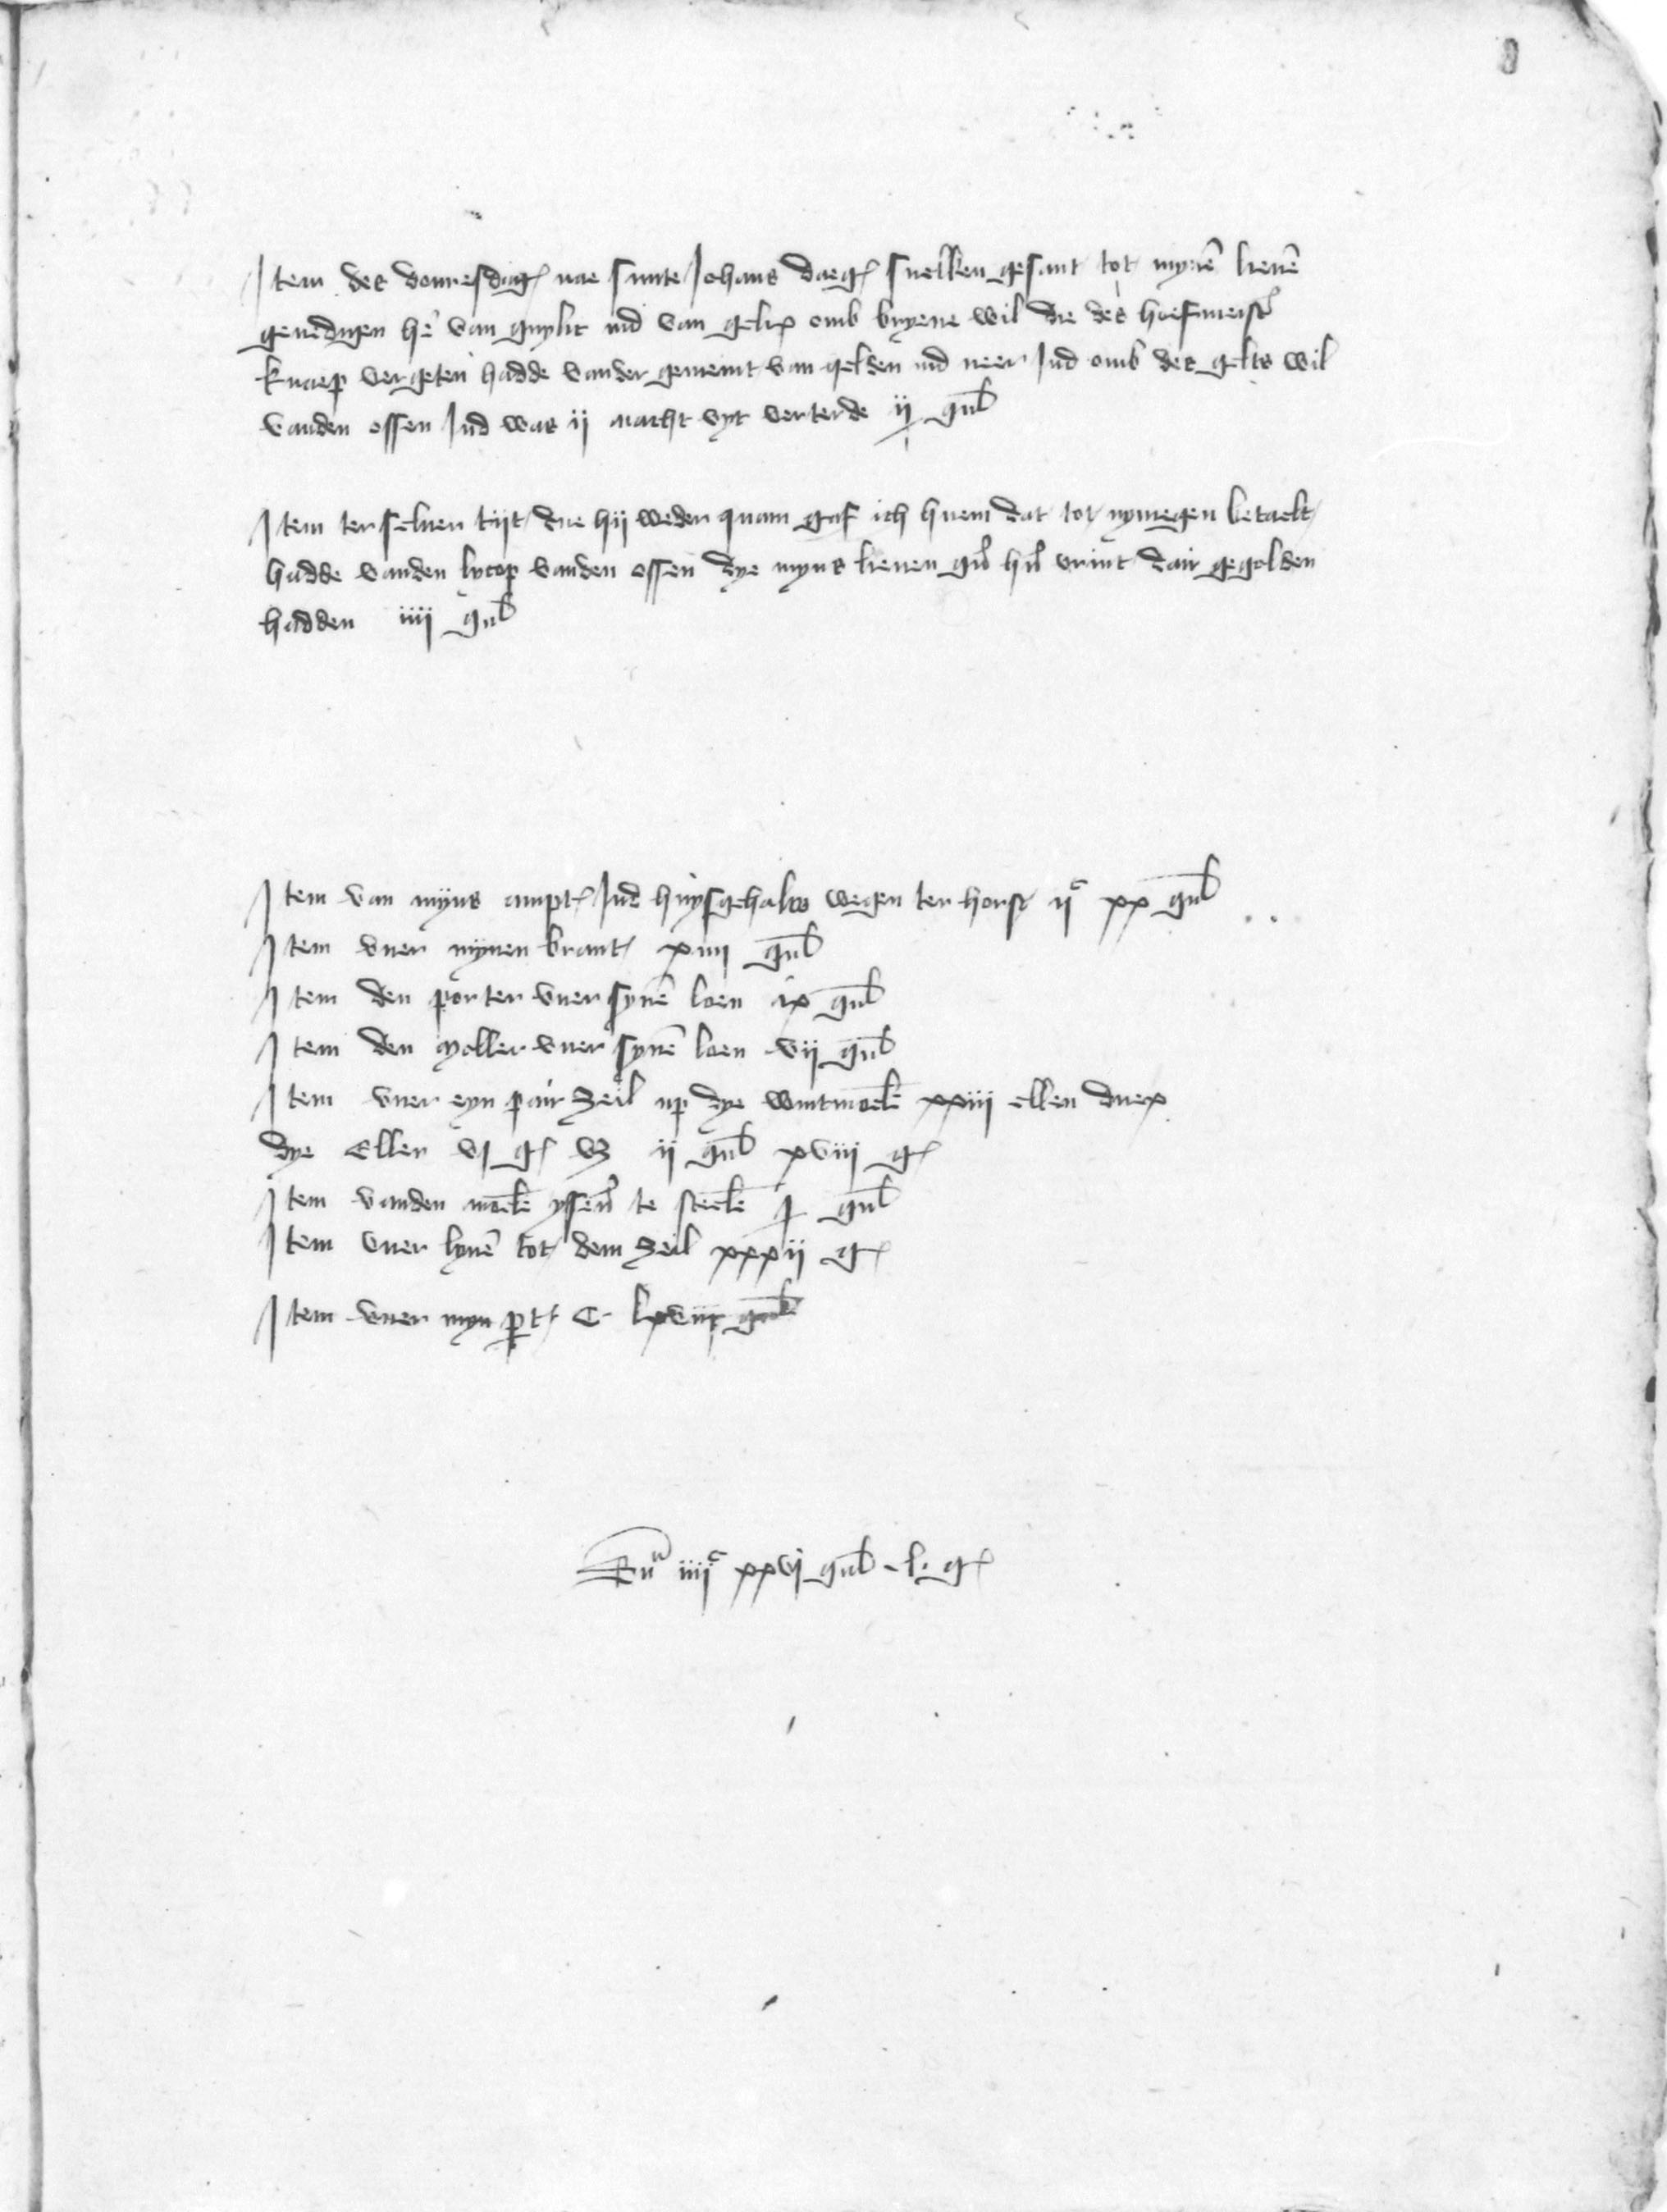 8
Item des donresdag nae sunte Johans daeg snelken gesant tot mynē lieuē
genedigen hē van guylic ind van gelr omb bryeue wil die des hoefmeist
knaep vergeten hadde vander gemeint van gelden ind neer Ind omb des gelts wil
vanden ossen Ind was ij nacht vyt verterde ij gul
Item ter seluer tijt due hij weder quam gaf ich huem dat tot nymegen betaelt
hadde vanden lycop vanden ossen dye myns lieuen gn hn vrint dair gegolden
hadden iiij gul
Item van mijns ampt Ind huysgehalts wegen ter horst ijc xx gul
Item vuer mynen brant xiiij gul
Item den porter vuer synē loen ix gul
Item den moller vuer synē loen vij gul
Item vuer eyn pair zeil up dye wintmoelē xxiij ellen duex
dye Ellen vj g ij gul xviij g
Item vanden moelē yseñ te steelē j gul
Item vuer lynē tot dem zeil xxxij g
Item vuer myn pert C lxviij gul
Su iiijc xxvj gul l g